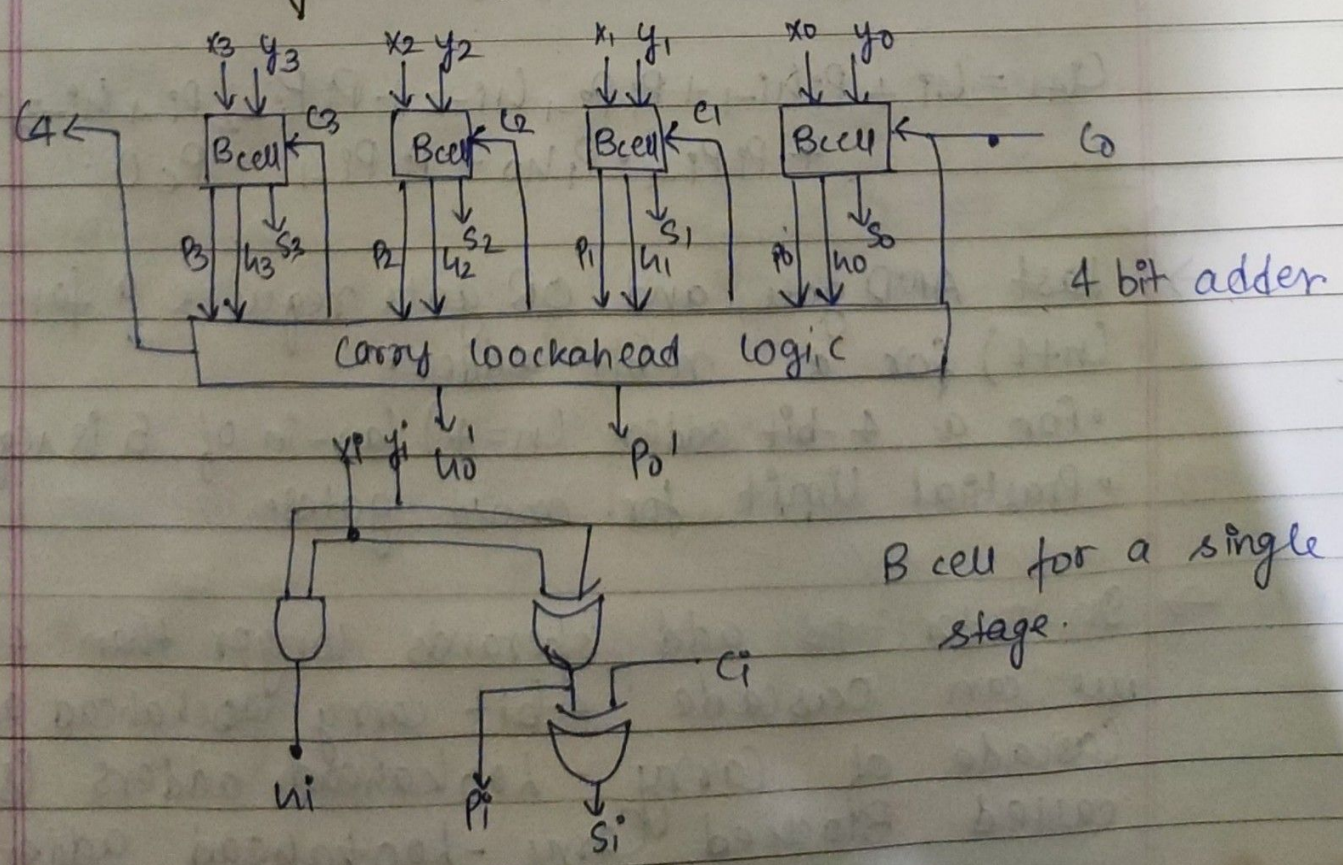 x3 y3 x2 y2 x1 y1 x0 y0
C4 C3 C2 C1 C0
Bcell Bcell Bcell Bcell
P3 G3 S3 P2 G2 S2 P1 G1 S1 P0 G0 S0
4 bit adder
Carry loockahead logic
G0' P0'
xi yi
B cell for a single
stage.
Ci
Gi Pi Si